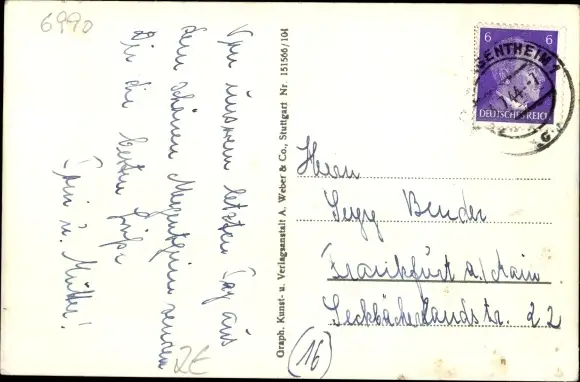 6990
Von unserem letzten Tag aus
dem schönen Mergentheim senden
Dir die besten Grüße
Toni u. Mutter!
2E
Graph. Kunst- u. Verlagsanstalt A. Weber & Co., Stuttgart Nr. 151566/104
6 6
DEUTSCHES REICH
GENTHEIM 1
44.-7
Herrn
Bender
Frankfurt a/Main
Seckbacherlandstr. 22
(16)